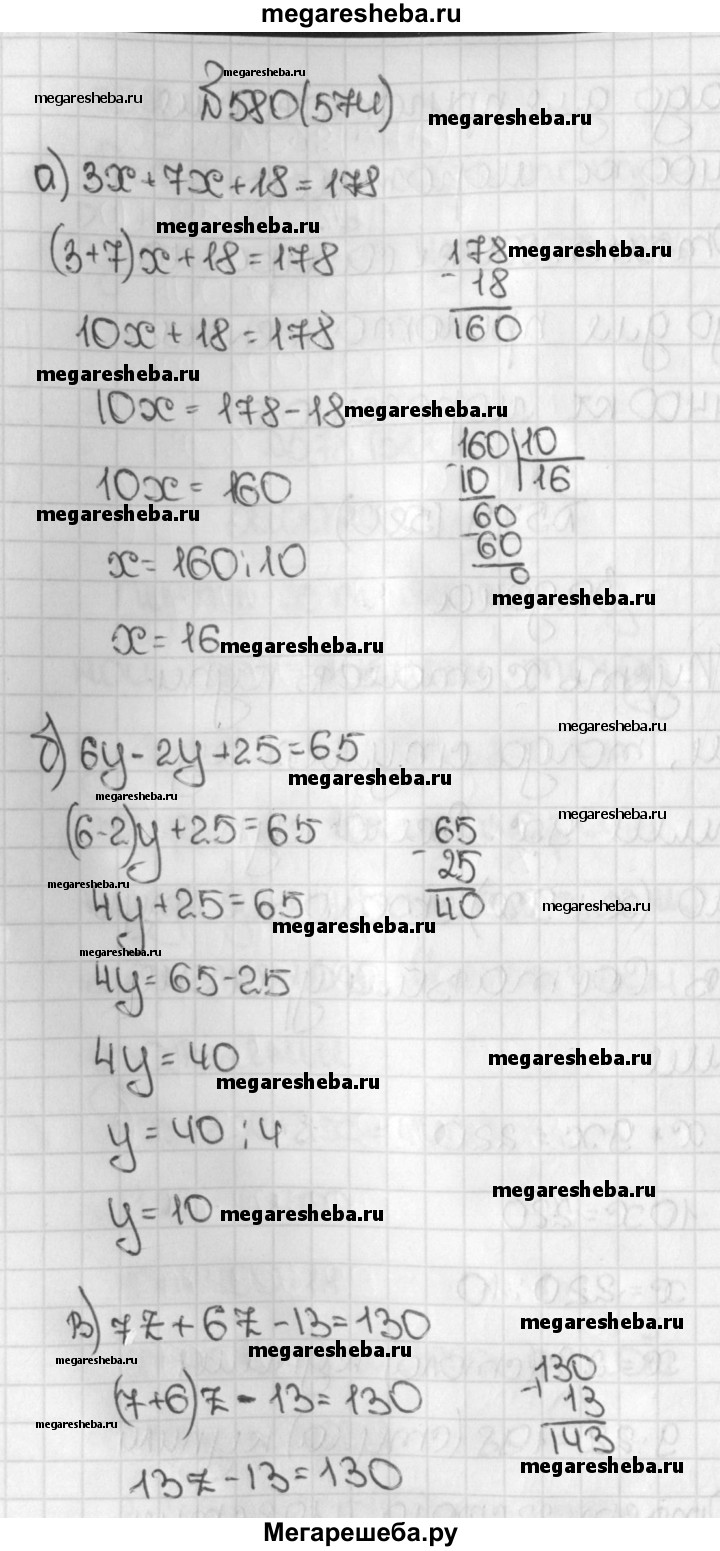 megaresheba.ru
megaresheba.ru
megaresheba.ru
№580(574)
megaresheba.ru
а) 3x+7x+18=178
megaresheba.ru
(3+7)x+18=178
178
megaresheba.ru
- 18
160
10x+18=178
megaresheba.ru
10x=178-18
megaresheba.ru
160 10
- 10 16
60
- 60
0
10x=160
megaresheba.ru
x=160:10
megaresheba.ru
x=16
megaresheba.ru
б) 6y-2y+25=65
megaresheba.ru
megaresheba.ru
megaresheba.ru
(6-2)y+25=65
megaresheba.ru
65
- 25
40
megaresheba.ru
4y+25=65
megaresheba.ru
megaresheba.ru
megaresheba.ru
4y=65-25
4y=40
megaresheba.ru
megaresheba.ru
y=40:4
megaresheba.ru
y=10
megaresheba.ru
в) 7z+6z-13=130
megaresheba.ru
megaresheba.ru
megaresheba.ru
(7+6)z-13=130
130
+ 13
143
megaresheba.ru
13z-13=130
megaresheba.ru
Мегарешеба.ру